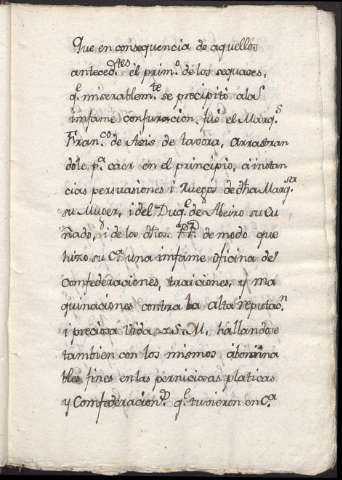 Que en consequencia de aquellos
anteced.tes el prim.o de los sequaces,
q.e miserablem.te se precipitó a la
infame conjuracion, fué el Marq.s
Fran.co de Asis de tavora, arrastran
dole p.a caer en el principio, a instan
cias persuasiones i Ruegos de dha Marq.sa
su Muger, i del Duq.e de Abeiro su Cu
ñado, i de los dhos P.P. de modo que
hizo su C.a una infame oficina de
Confederaciones, traiciones, y ma
quinaciones contra la alta reputao.n
i preciosa Vida x S.M, hallandose
tambien con los mismos abomina
bles fines en las perniciosas platicas
y Confederacion.s q.e tuvieron en C.a